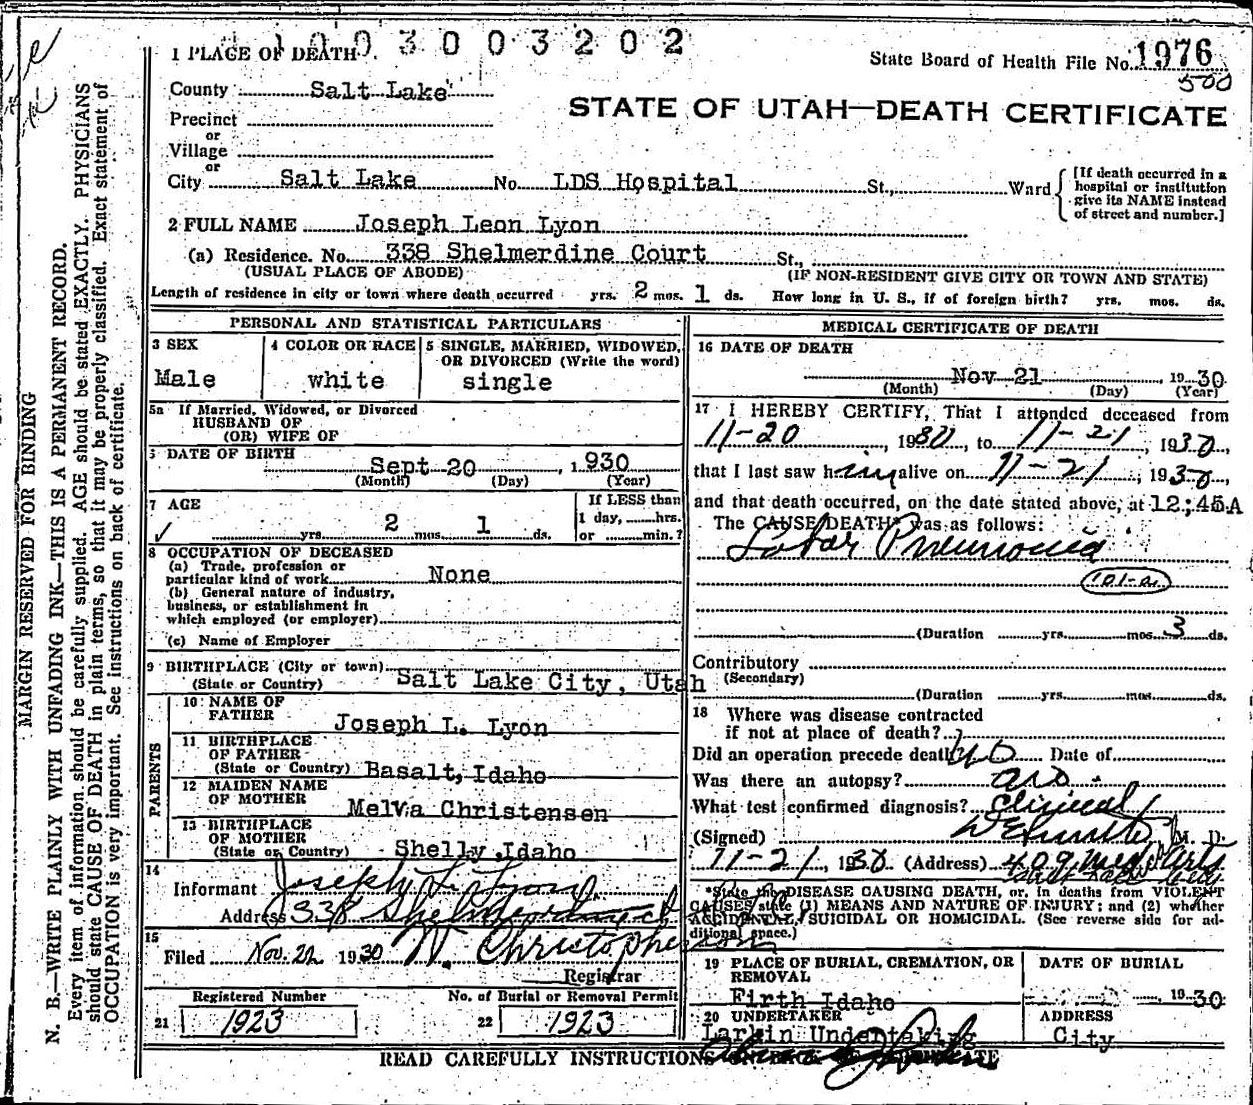 1003003202
1 PLACE OF DEATH
State Board of Health File No. 1976
500
County Salt Lake
STATE OF UTAH—DEATH CERTIFICATE
Precinct
or
Village
or
City Salt Lake No. LDS Hospital St., Ward
[If death occurred in a hospital or institution give its NAME instead of street and number.]
2 FULL NAME Joseph Leon Lyon
(a) Residence. No. 338 Shelmerdine Court St.,
(USUAL PLACE OF ABODE) (IF NON-RESIDENT GIVE CITY OR TOWN AND STATE)
Length of residence in city or town where death occurred yrs. 2 mos. 1 ds. How long in U. S., if of foreign birth? yrs. mos. ds.
MARGIN RESERVED FOR BINDING
N. B.—WRITE PLAINLY WITH UNFADING INK—THIS IS A PERMANENT RECORD.
Every item of information should be carefully supplied. AGE should be stated EXACTLY. PHYSICIANS
should state CAUSE OF DEATH in plain terms, so that it may be properly classified. Exact statement of
OCCUPATION is very important. See instructions on back of certificate.
PERSONAL AND STATISTICAL PARTICULARS
3 SEX
Male
4 COLOR OR RACE
white
5 SINGLE, MARRIED, WIDOWED,
OR DIVORCED (Write the word)
single
5a If Married, Widowed, or Divorced
HUSBAND OF
(OR) WIFE OF
6 DATE OF BIRTH
Sept 20, 1930
(Month) (Day) (Year)
7 AGE
yrs. 2 mos. 1 ds.
If LESS than
1 day, hrs.
or min.?
8 OCCUPATION OF DECEASED
(a) Trade, profession or
particular kind of work None
(b) General nature of industry,
business, or establishment in
which employed (or employer)
(c) Name of Employer
9 BIRTHPLACE (City or town)
(State or Country) Salt Lake City, Utah
PARENTS
10 NAME OF
FATHER Joseph L. Lyon
11 BIRTHPLACE
OF FATHER
(State or Country) Basalt, Idaho
12 MAIDEN NAME
OF MOTHER Melva Christensen
13 BIRTHPLACE
OF MOTHER
(State or Country) Shelly, Idaho
14
Informant Joseph L. Lyon
Address 338 Shelmerdine ct
15
Filed Nov. 22 1930 W. Christopherson
Registrar
Registered Number
21 1923
No. of Burial or Removal Permit
22 1923
MEDICAL CERTIFICATE OF DEATH
16 DATE OF DEATH
Nov 21, 1930
(Month) (Day) (Year)
17 I HEREBY CERTIFY, That I attended deceased from
11-20, 1930, to 11-21, 1930,
that I last saw him alive on 11-21, 1930,
and that death occurred, on the date stated above, at 12:45A
The CAUSE DEATH was as follows:
Lobar Pneumonia
101-a
(Duration yrs. mos. 3 ds.
Contributory
(Secondary)
(Duration yrs. mos. ds.
18 Where was disease contracted
if not at place of death?
Did an operation precede death? no Date of
Was there an autopsy? no
What test confirmed diagnosis? Clinical
(Signed) M. D.
11-21, 1930 (Address) 409 Med Arts
*State the DISEASE CAUSING DEATH, or, in deaths from VIOLENT
CAUSES state (1) MEANS AND NATURE OF INJURY; and (2) whether
ACCIDENTAL, SUICIDAL OR HOMICIDAL. (See reverse side for ad-
ditional space.)
19 PLACE OF BURIAL, CREMATION, OR
REMOVAL
Firth Idaho
DATE OF BURIAL
, 1930
20 UNDERTAKER
Larkin Undertaking
ADDRESS
City
READ CAREFULLY INSTRUCTIONS